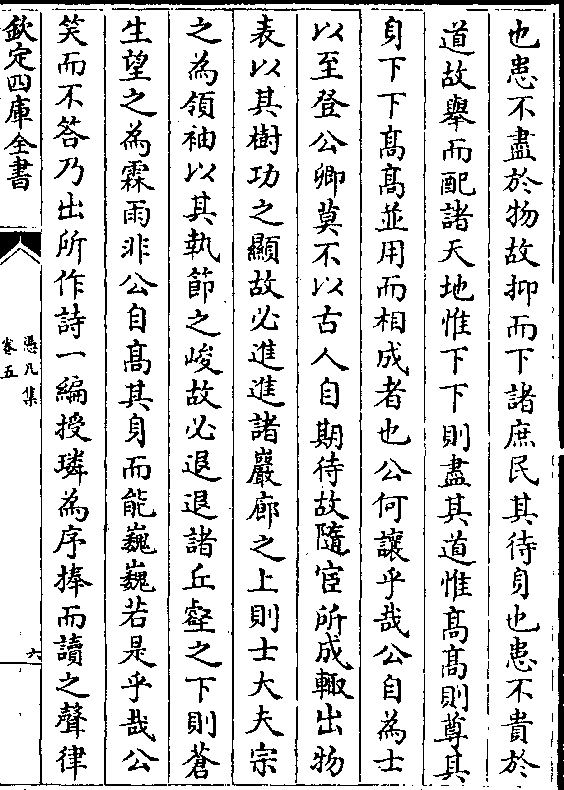 也患不盡於物故抑而下諸庶民其待身也患不貴於
道故舉而配諸天地惟下下則盡其道惟髙髙則尊其
身下下髙髙並用而相成者也公何讓乎哉公自為士
以至登公卿莫不以古人自期待故隨宦所成輙出物
表以其樹功之顯故必進進諸巖廊之上則士大夫宗
之為領袖以其執節之峻故必退退諸丘壑之下則蒼
生望之為霖雨非公自髙其身而能巍巍若是乎哉公
笑而不答乃出所作詩一編授璘為序捧而讀之聲律
欽定四庫全書
憑几集
卷五
六